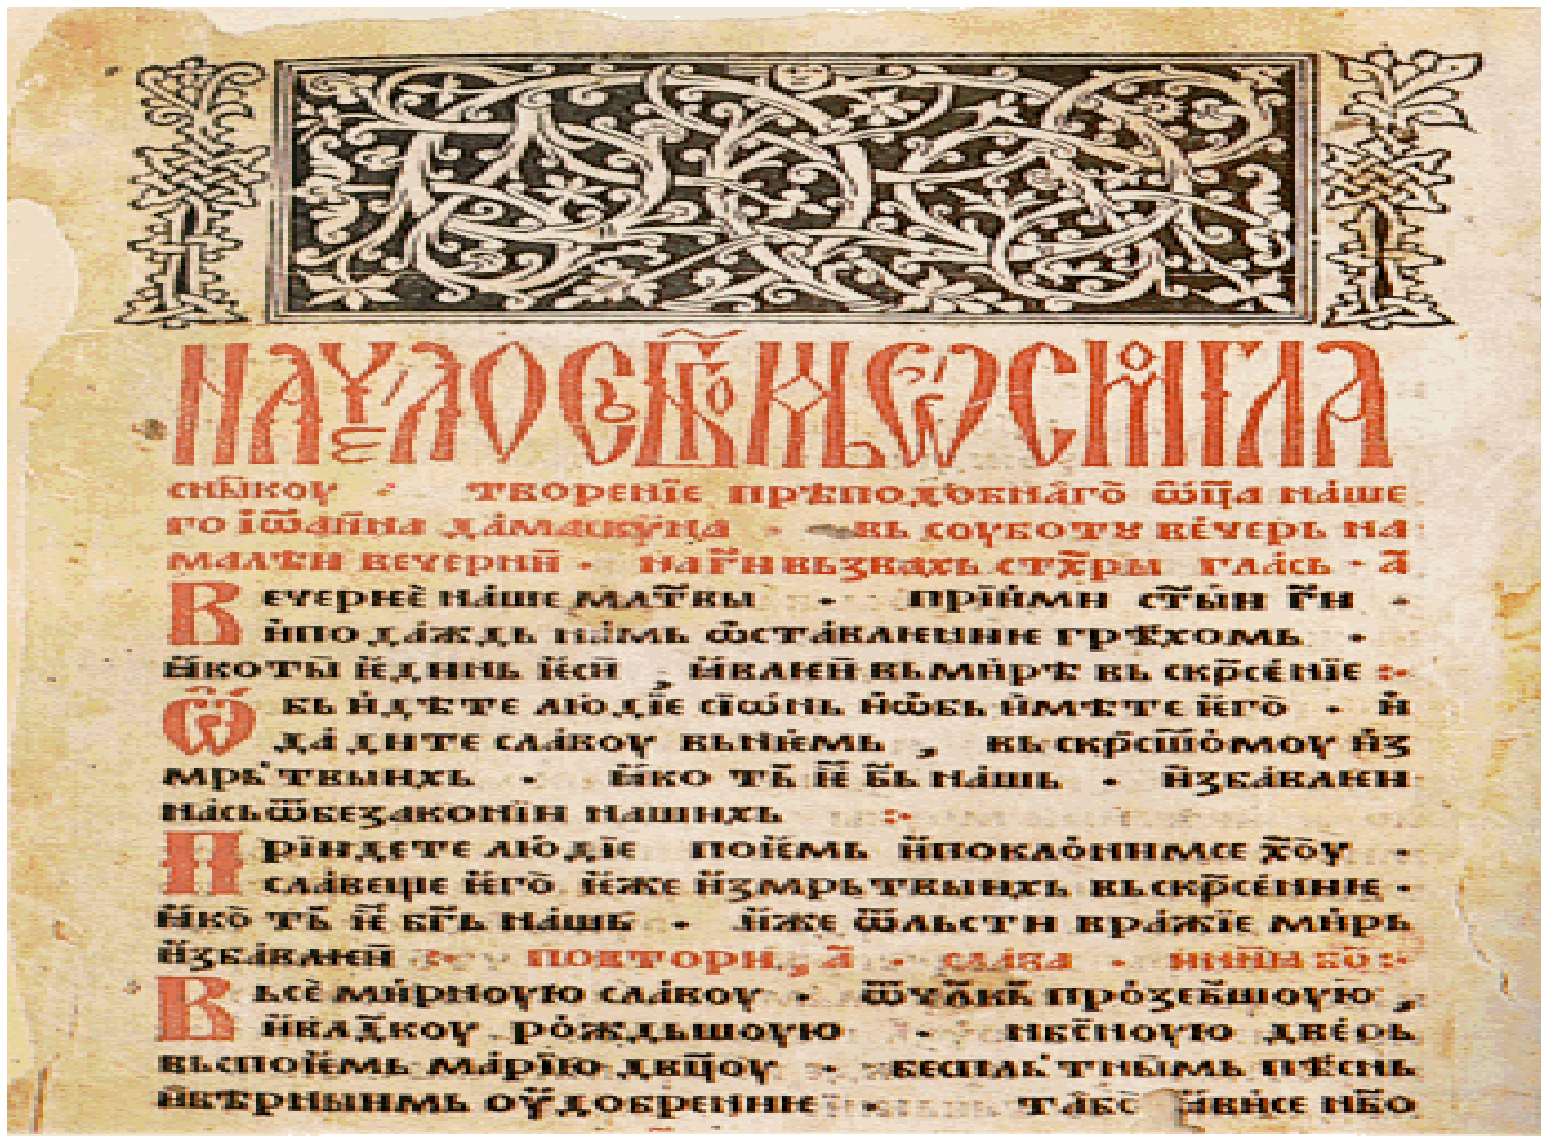 сниикоу · творенїе прѣподобнаго ѿц҃а наше
го іѡанна дамаскѵна · вь соуботꙋ вечерь на
малѣи вечерни · на г҃и вьзвахь стх҃ры гласъ · а҃
Вечернѥ наше мл҃твы · прїими ст҃ыи г҃и ·
и подаждь намь ѡставлѥниѥ грѣхомь ·
ꙗко ты ѥдинь ѥси , ꙗвлѥи вь мирѣ вьскр҃сенїе :·
Ѡбьидѣте людїе сїѡнь и ѡбьимѣте ѥго · и
дадите славоу вь нѥмь , вьскр҃сшомоу из
мрьтвыихь · ꙗко тъ ѥ҃ б҃ь нашь · избавлѥи
нась ѿ безаконїи нашихь :·
Прїидете людїе поѥмь и поклонимсе х҃оу ·
славеще ѥго ѥже из мрьтвыихь вьскр҃сениѥ ·
ꙗко тъ ѥ҃ б҃ь нашь · иже ѿ льсти вражїе мирь
избавлѥи повтори, а҃ · слава · нинꙗ бо҃ :·
Вьсемирноую славоу · ѿ чл҃кь прозебшоую ,
и влад҃коу рождьшоую · нбс҃ноую дверь
вьспоѥмь марїю дв҃цоу · беспльтнымь пѣснь
и вѣрныимь оудобрениѥ · та бо ꙗви се нб҃о